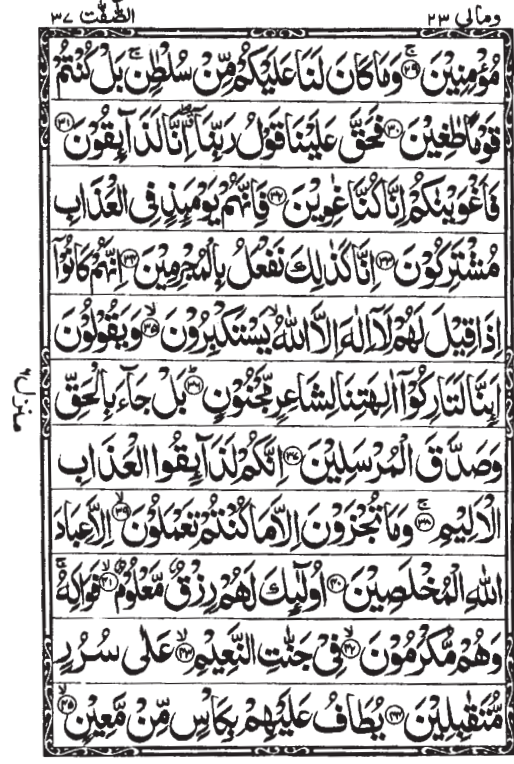 وما لی ۲۳ الصّٰفّٰت ۳۷
مُؤْمِنِيْنَ ﴿۲۹﴾ۚ وَمَا كَانَ لَنَا عَلَيْكُمْ مِّنْ سُلْطٰنٍۚ بَلْ كُنْتُمْ
قَوْمًا طٰغِيْنَ ﴿۳۰﴾ فَحَقَّ عَلَيْنَا قَوْلُ رَبِّنَآ ۖ اِنَّا لَذَآىِٕقُوْنَ ﴿۳۱﴾
فَاَغْوَيْنٰكُمْ اِنَّا كُنَّا غٰوِيْنَ ﴿۳۲﴾ فَاِنَّهُمْ يَوْمَىِٕذٍ فِى الْعَذَابِ
مُشْتَرِكُوْنَ ﴿۳۳﴾ اِنَّا كَذٰلِكَ نَفْعَلُ بِالْمُجْرِمِيْنَ ﴿۳۴﴾ اِنَّهُمْ كَانُوْٓا
اِذَا قِيْلَ لَهُمْ لَآ اِلٰهَ اِلَّا اللّٰهُ ۙ يَسْتَكْبِرُوْنَ ﴿۳۵﴾ۙ وَيَقُوْلُوْنَ
اَىِٕنَّا لَتَارِكُوْٓا اٰلِهَتِنَا لِشَاعِرٍ مَّجْنُوْنٍ ﴿۳۶﴾ؕ بَلْ جَآءَ بِالْحَقِّ
وَصَدَّقَ الْمُرْسَلِيْنَ ﴿۳۷﴾ اِنَّكُمْ لَذَآىِٕقُوا الْعَذَابِ
الْاَلِيْمِ ﴿۳۸﴾ۚ وَمَا تُجْزَوْنَ اِلَّا مَا كُنْتُمْ تَعْمَلُوْنَ ﴿۳۹﴾ۙ اِلَّا عِبَادَ
اللّٰهِ الْمُخْلَصِيْنَ ﴿۴۰﴾ اُولٰٓىِٕكَ لَهُمْ رِزْقٌ مَّعْلُوْمٌ ﴿۴۱﴾ۙ فَوَاكِهُ ۚ
وَهُمْ مُّكْرَمُوْنَ ﴿۴۲﴾ۙ فِيْ جَنّٰتِ النَّعِيْمِ ﴿۴۳﴾ۙ عَلٰى سُرُرٍ
مُّتَقٰبِلِيْنَ ﴿۴۴﴾ يُطَافُ عَلَيْهِمْ بِكَاْسٍ مِّنْ مَّعِيْنٍ ﴿۴۵﴾ۙ
منزل ۶